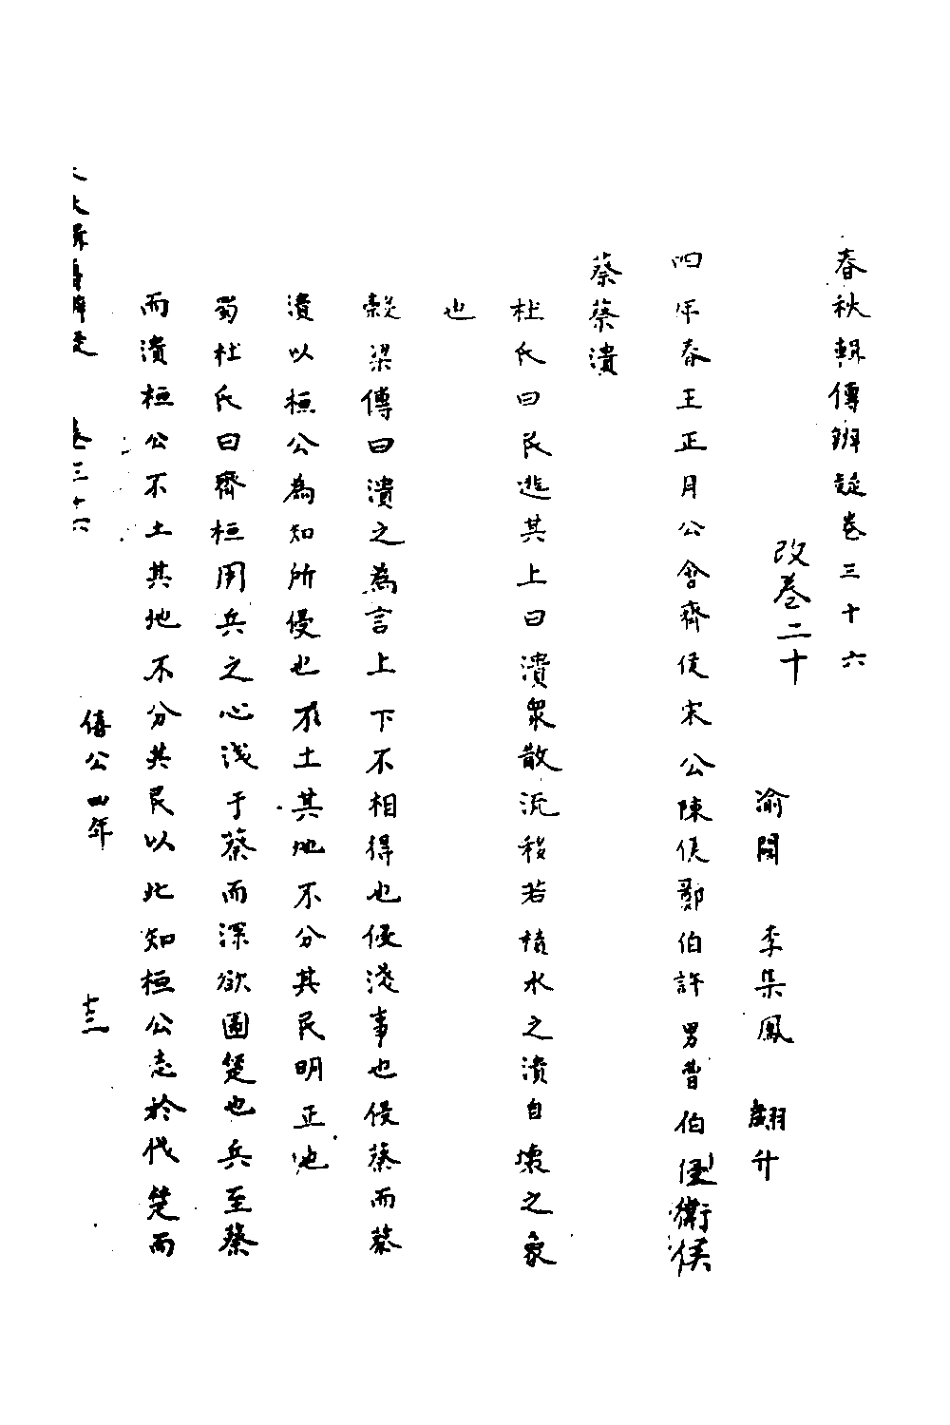 春秋輯傳辨疑卷三十六
改卷二十
渝關　李集鳳　翽升
四年春王正月公會齊侯宋公陳侯鄭伯許男曹伯侵
衛侯
蔡蔡潰
杜氏曰民逃其上曰潰衆散流移若積水之潰自壞之象
也
穀梁傳曰潰之為言上下不相得也侵淺事也侵蔡而蔡
潰以桓公為知所侵也不土其地不分其民明正也
蜀杜氏曰齊桓用兵之心淺于蔡而深欲圖楚也兵至蔡
而潰桓公不土其地不分其民以此知桓公志於伐楚而
春秋輯傳辨疑　卷三十六　僖公四年